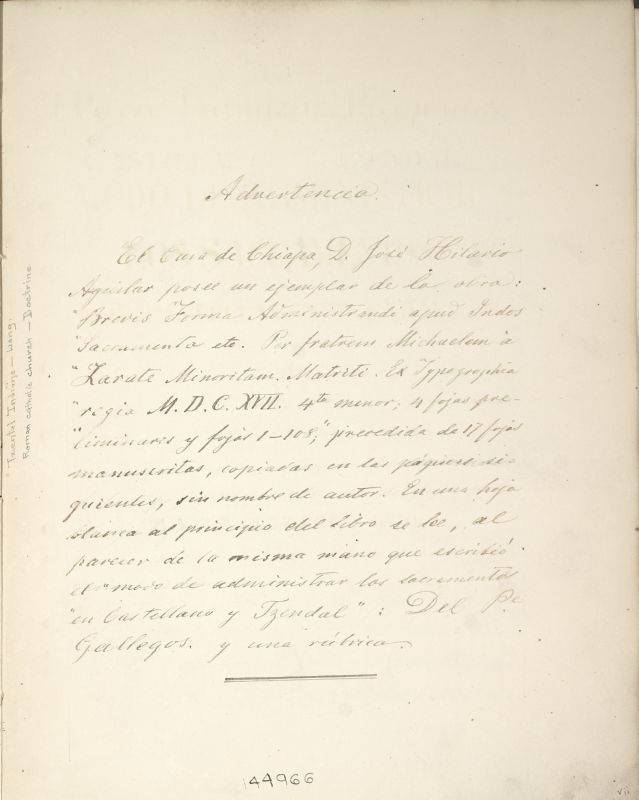 Advertencia.
El Cura de Chiapa, D. José Hilario
Aguilar posee un ejemplar de la obra:
"Brevis Forma Administrandi apud Indos
"Sacramenta etc. Per fratrem Michaelem a
"Zarate Minoritam. Matriti. Ex Typographia
"regia M.D.C.XVII. 4to menor; 4 fojas pre-
"liminares y fojas 1-108," precedida de 17 fojas
manuscritas, copiadas en las páginas si-
guientes, sin nombre de autor. En una hoja
blanca al principio del libro se lee, al
parecer de la misma mano que escribió
el "modo de administrar los sacramentos
"en Castellano y Tzendal": Del Pe
Gallegos. y una rúbrica.
Tzental Indians - Lang.
Roman catholic church - Doctrine
44966
vii